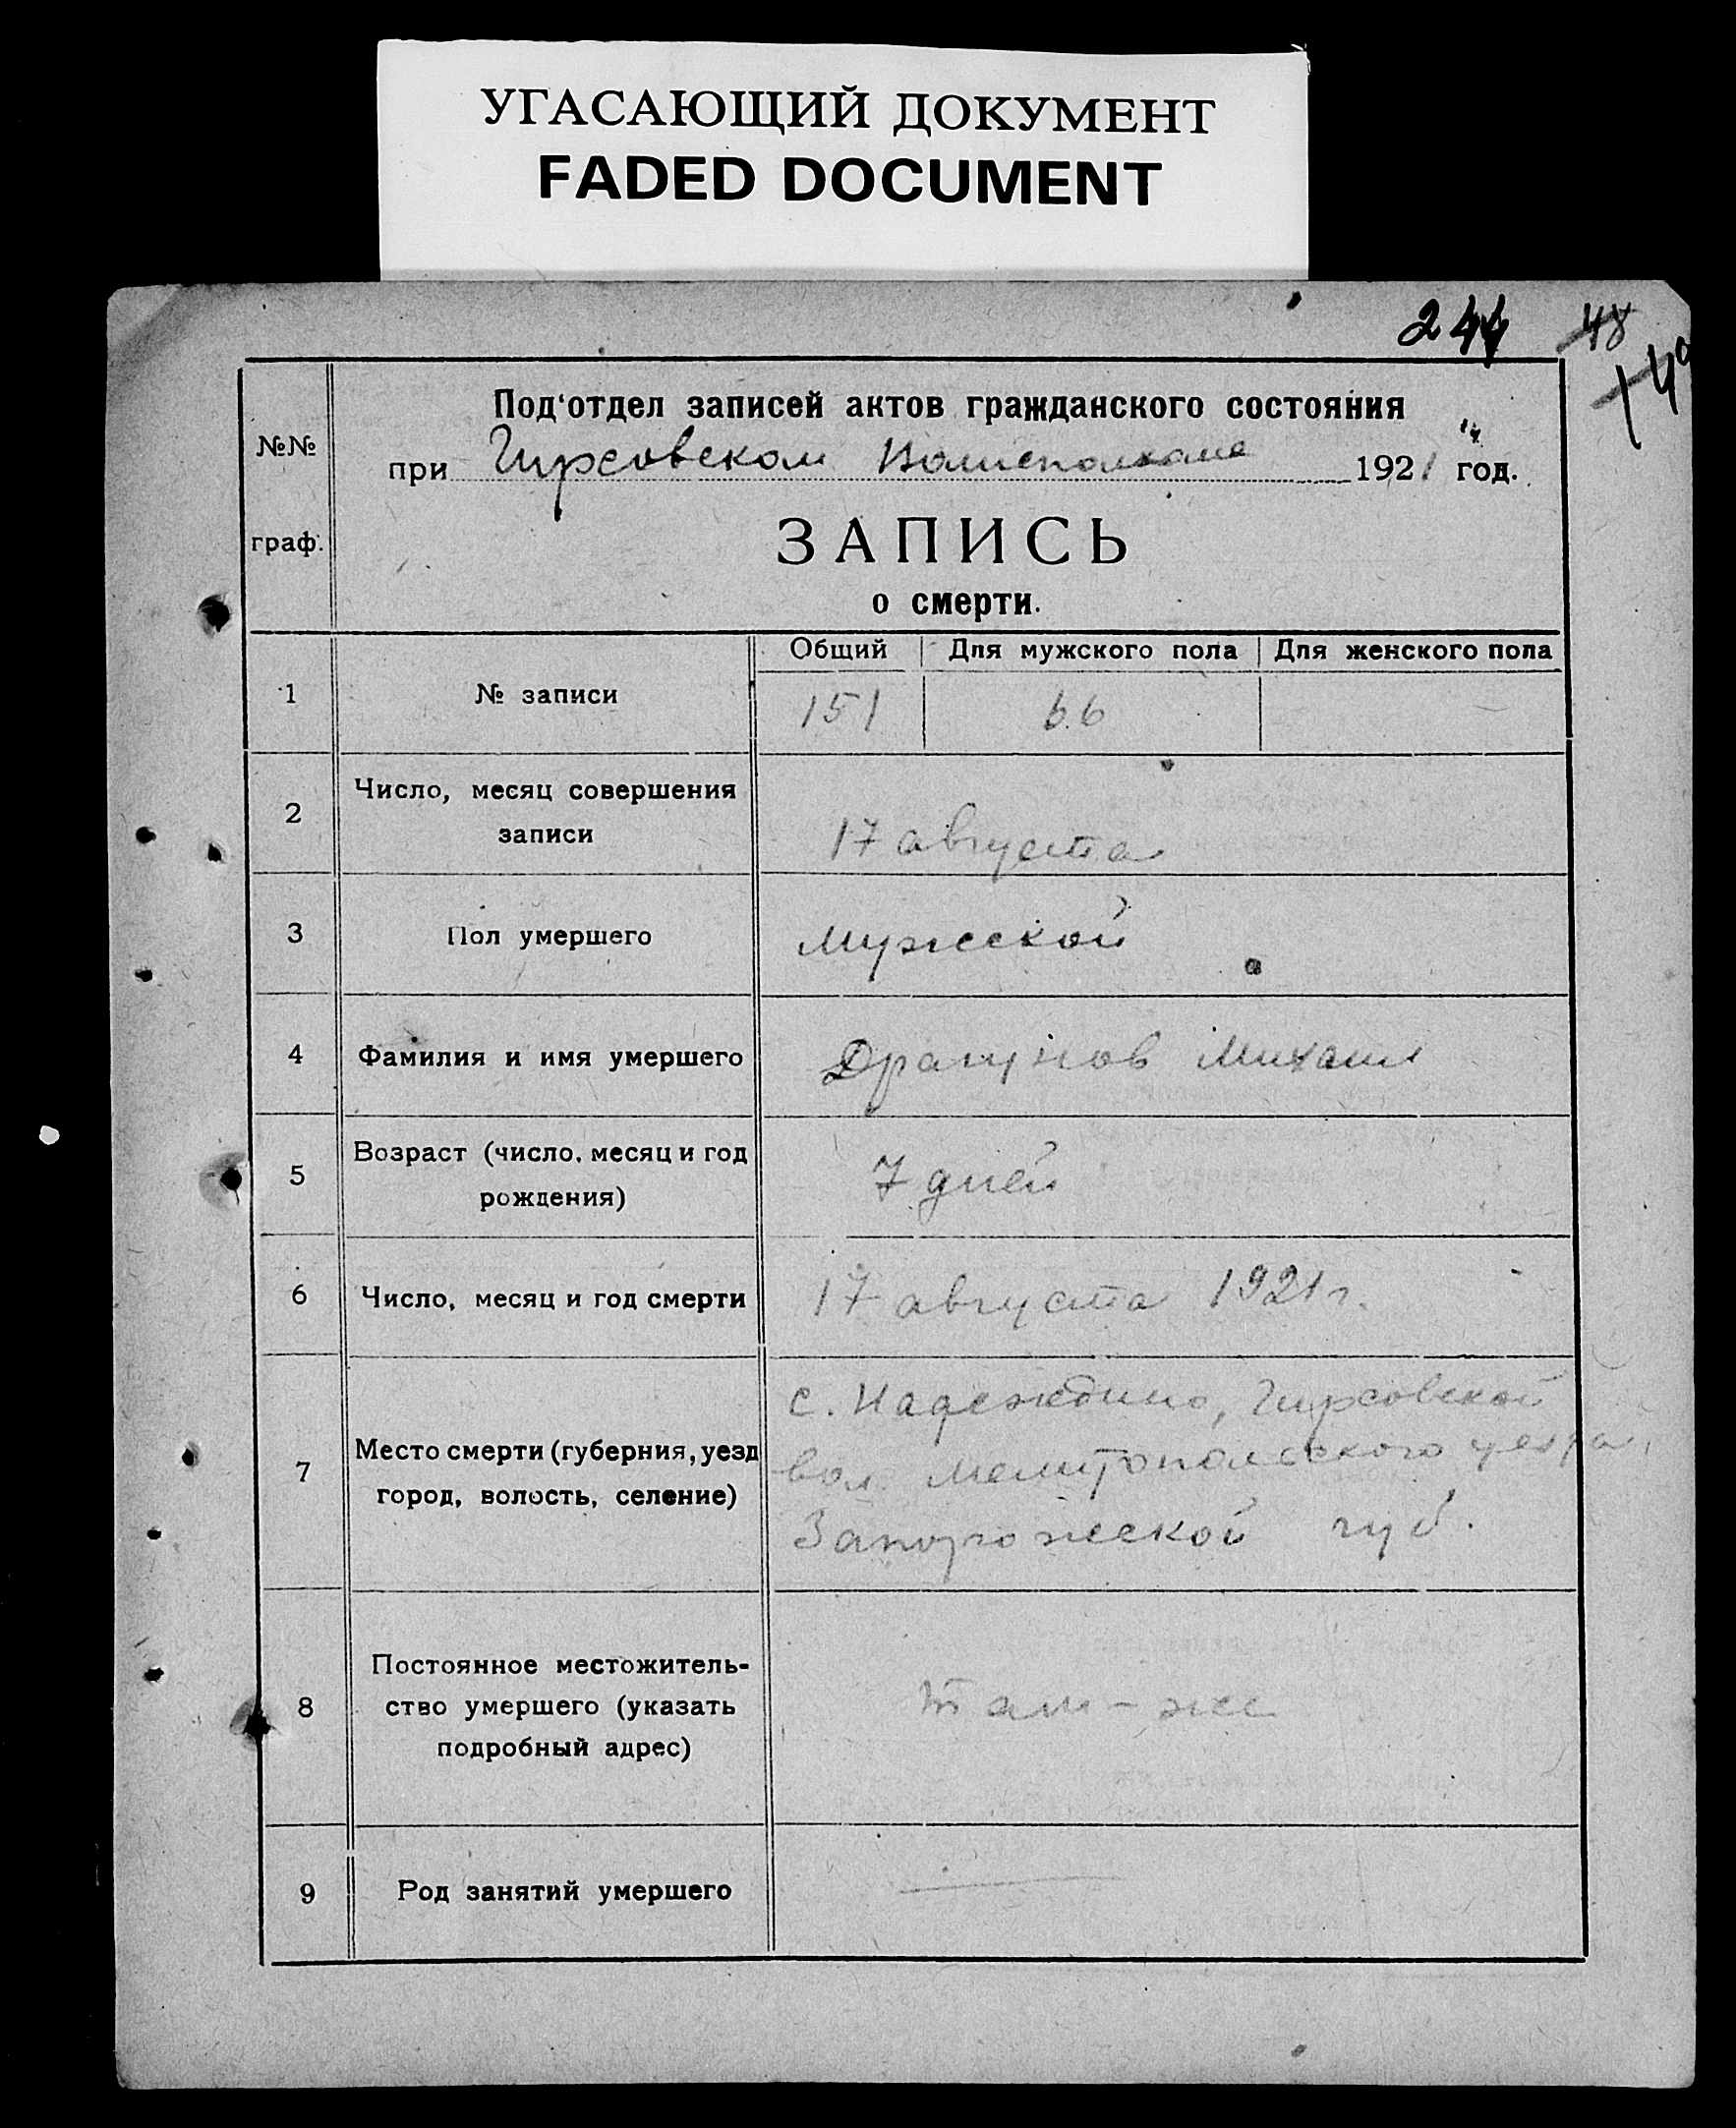 УГАСАЮЩИЙ ДОКУМЕНТ
FADED DOCUMENT
244 48
№№ граф.
Под'отдел записей актов гражданского состояния
при Гирсовском Волисполкоме 1921 год.
ЗАПИСЬ
о смерти.
Общий Для мужского пола Для женского пола
1 № записи 151 66 —
2 Число, месяц совершения
записи 17 августа
3 Пол умершего мужской
4 Фамилия и имя умершего Драгунов Михаил
5 Возраст (число, месяц и год
рождения) 7 дней
6 Число, месяц и год смерти 17 августа 1921 г.
7 Место смерти (губерния, уезд
город, волость, селение)
с. Надеждино, Гирсовской
вол. Мелитопольского уезда,
Запорожской губ.
8 Постоянное местожитель-
ство умершего (указать
подробный адрес) там-же
9 Род занятий умершего —